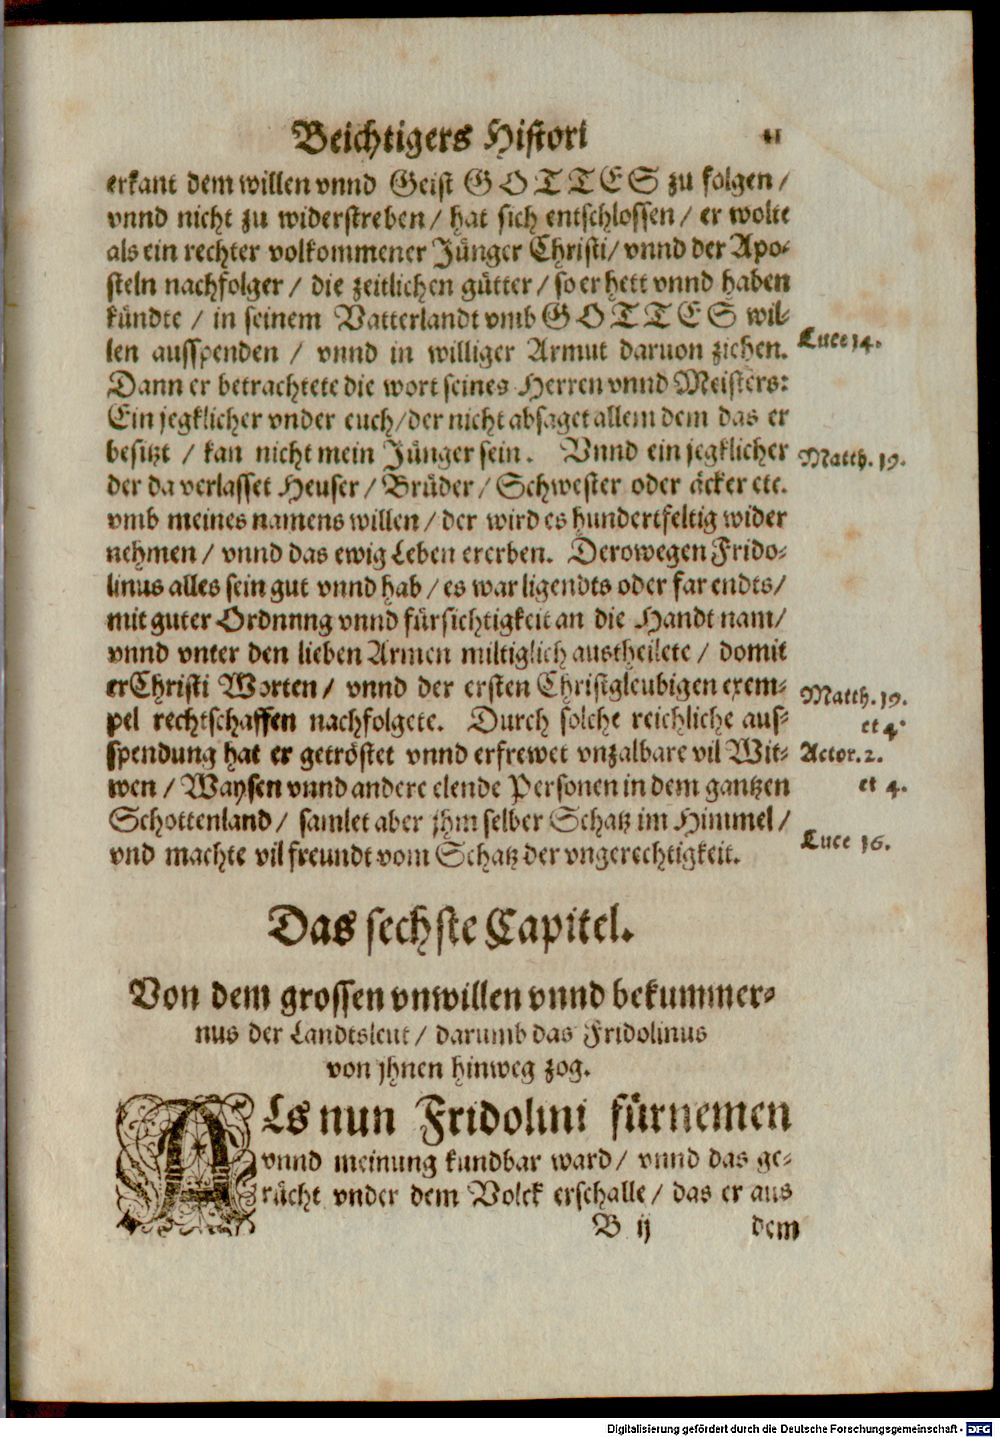 Beichtigers Histori 11
erkant dem willen vnnd Geist GOTTES zu folgen /
vnnd nicht zu widerstreben / hat sich entschlossen / er wolte
als ein rechter volkommener Jünger Christi / vnnd der Apo-
steln nachfolger / die zeitlichen gütter / so er hett vnnd haben
kündte / in seinem Vatterlandt vmb GOTTES wil-
len ausspenden / vnnd in williger Armut daruon ziehen.
Luce 14.
Dann er betrachtete die wort seines Herren vnnd Meisters:
Ein jegklicher vnder euch / der nicht absaget allem dem das er
besitzt / kan nicht mein Jünger sein. Vnnd ein jegklicher
Matth. 19.
der da verlasset Heuser / Brüder / Schwester oder äcker etc.
vmb meines namens willen / der wird es hundertfeltig wider
nehmen / vnnd das ewig Leben ererben. Derowegen Frido-
linus alles sein gut vnnd hab / es war ligendts oder farendts /
mit guter Ordnnng vnnd fürsichtigkeit an die Handt nam /
vnnd vnter den lieben Armen miltiglich austheilete / domit
er Christi Worten / vnnd der ersten Christgleubigen exem-
Matth. 19.
pel rechtschaffen nachfolgete. Durch solche reichliche aus-
et 4.
spendung hat er getröstet vnnd erfrewet vnzalbare vil Wit-
Actor. 2.
wen / Waysen vnnd andere elende Personen in dem gantzen
et 4.
Schottenland / samlet aber jhm selber Schatz im Himmel /
vnd machte vil freundt vom Schatz der vngerechtigkeit.
Luce 16.
Das sechste Capitel.
Von dem grossen vnwillen vnnd bekummer-
nus der Landtsleut / darumb das Fridolinus
von jhnen hinweg zog.
ALs nun Fridolini fürnemen
vnnd meinung kundbar ward / vnnd das ge-
rücht vnder dem Volck erschalle / das er aus
B ij dem
Digitalisierung gefördert durch die Deutsche Forschungsgemeinschaft - DFG